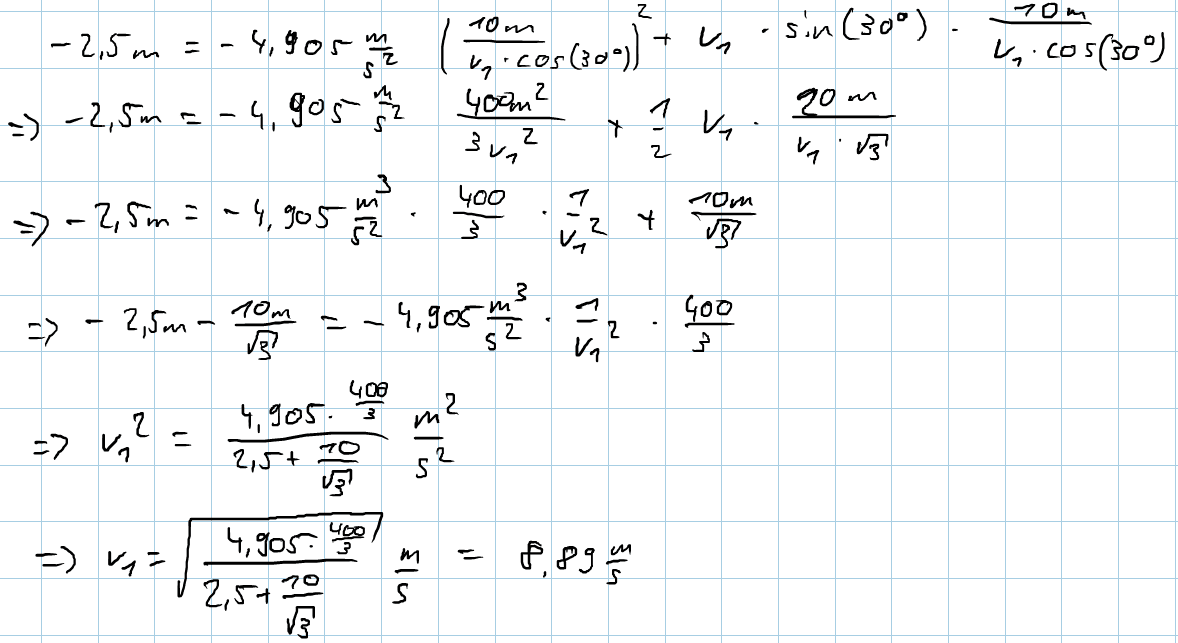 -2,5m = -4,905 m/s² (10m / (v₁ · cos(30°)))² + v₁ · sin(30°) · 10m / (v₁ · cos(30°))
=> -2,5m = -4,905 m/s² 400m² / (3 v₁²) + 1/2 v₁ · 20m / (v₁ · √3)
=> -2,5m = -4,905 m³/s² · 400/3 · 1/v₁² + 10m/√3
=> -2,5m - 10m/√3 = -4,905 m³/s² · 1/v₁² · 400/3
=> v₁² = (4,905 · 400/3) / (2,5 + 10/√3) m²/s²
=> v₁ = √((4,905 · 400/3) / (2,5 + 10/√3)) m/s = 8,89 m/s